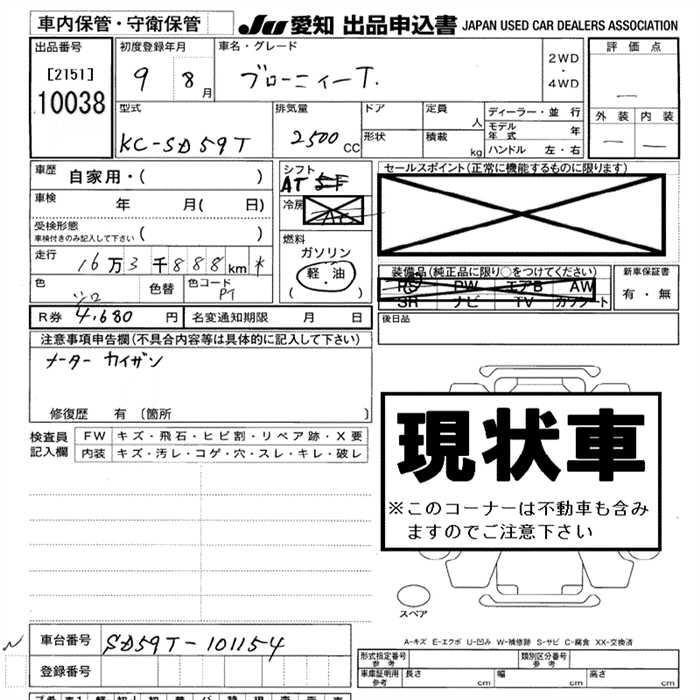 車内保管・守衛保管
JU 愛知 出品申込書 JAPAN USED CAR DEALERS ASSOCIATION
出品番号
[2151]
10038
初度登録年月
9 8月
車名・グレード
ブローニィーT.
2WD
・
4WD
評価点
—
外装 内装
— —
型式
KC-SD59T
排気量
2500 CC
ドア
形状
定員
人
積載
kg
ディーラー・並行
モデル年式 年
ハンドル 左・右
車歴 自家用・( )
車検 年 月( 日)
受検形態
車検付きのみ記入して下さい ( )
走行 16万3千888km *
色 シロ
色替
色コード
R券 4,680円
名変通知期限 月 日
シフト
AT 5F
冷房
AC
燃料
ガソリン
軽・油
( )
セールスポイント(正常に機能するものに限ります)
装備品(純正品に限り○をつけてください)
PS PW エアB AW
SR ナビ TV カワシート
新車保証書
有・無
後日品
注意事項申告欄(不具合内容等は具体的に記入して下さい)
メーター カイザン
修復歴 有 [箇所 ]
検査員
記入欄
FW キズ・飛石・ヒビ割・リペア跡・X要
内装 キズ・汚レ・コゲ・穴・スレ・キレ・破レ
現状車
※このコーナーは不動車も含み
ますのでご注意下さい
スペア
A-キズ E-エクボ U-凹み W-補修跡 S-サビ C-腐食 XX-交換済
車台番号 SD59T-101154
登録番号
形式指定番号
参考
類別区分番号
参考
車庫証明用
参考
長さ cm 幅 cm 高さ cm